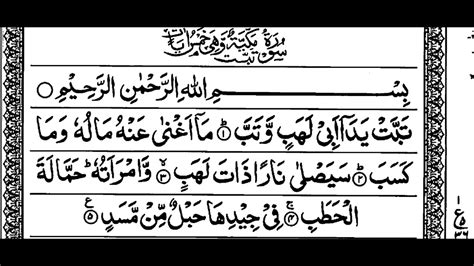 سُوْرَةُ تَبَّتْ مَكِّيَّةٌ وَّهِيَ خَمْسُ اٰيَاتٍ
بِسْمِ اللهِ الرَّحْمٰنِ الرَّحِيْمِ ○
تَبَّتْ يَدَآ اَبِيْ لَهَبٍ وَّتَبَّ ۱ؕ مَآ اَغْنٰى عَنْهُ مَالُهٗ وَمَا
كَسَبَ ۲ؕ سَيَصْلٰى نَارًا ذَاتَ لَهَبٍ ۳ۙ وَّامْرَاَتُهٗ ؕ حَمَّالَةَ
الْحَطَبِ ۴ۚ فِيْ جِيْدِهَا حَبْلٌ مِّنْ مَّسَدٍ ۵ ع